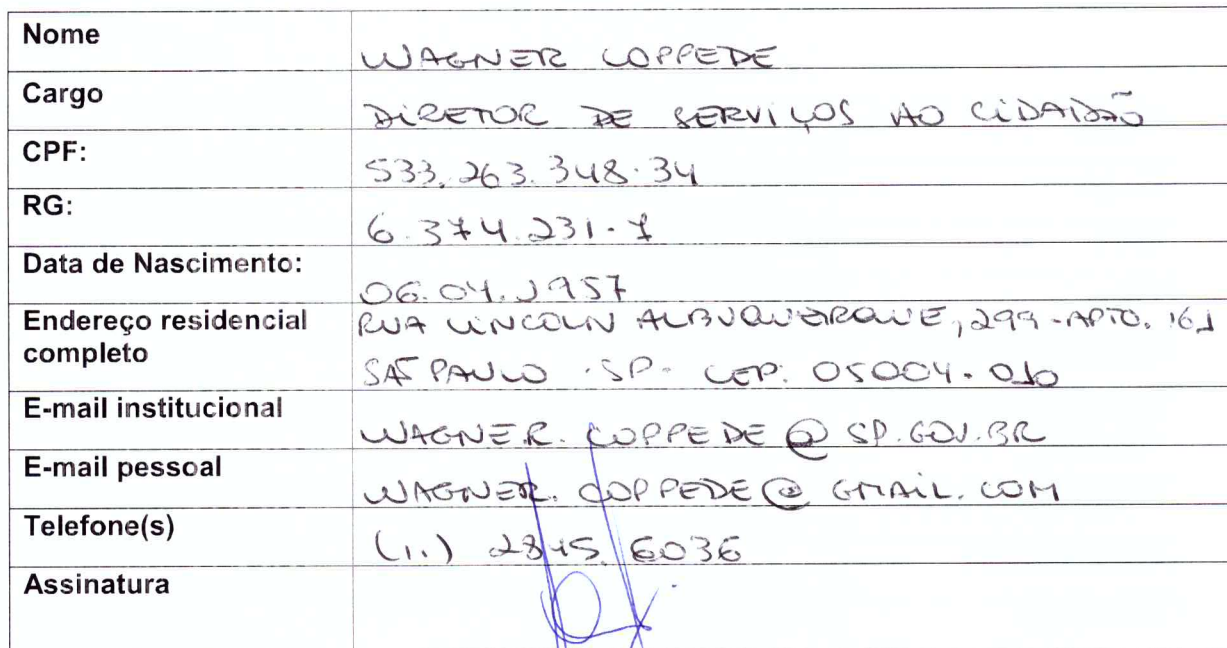 Nome WAGNER COPPEDE
Cargo DIRETOR DE SERVIÇOS AO CIDADÃO
CPF: 533.263.348.34
RG: 6.374.231-7
Data de Nascimento: 06.04.1957
Endereço residencial completo RUA LINCOLN ALBUQUERQUE, 299 - APTO. 161
SÃO PAULO - SP - CEP: 05004-010
E-mail institucional WAGNER.COPPEDE@SP.GOV.BR
E-mail pessoal WAGNER.COPPEDE@GMAIL.COM
Telefone(s) (11) 2845.6036
Assinatura